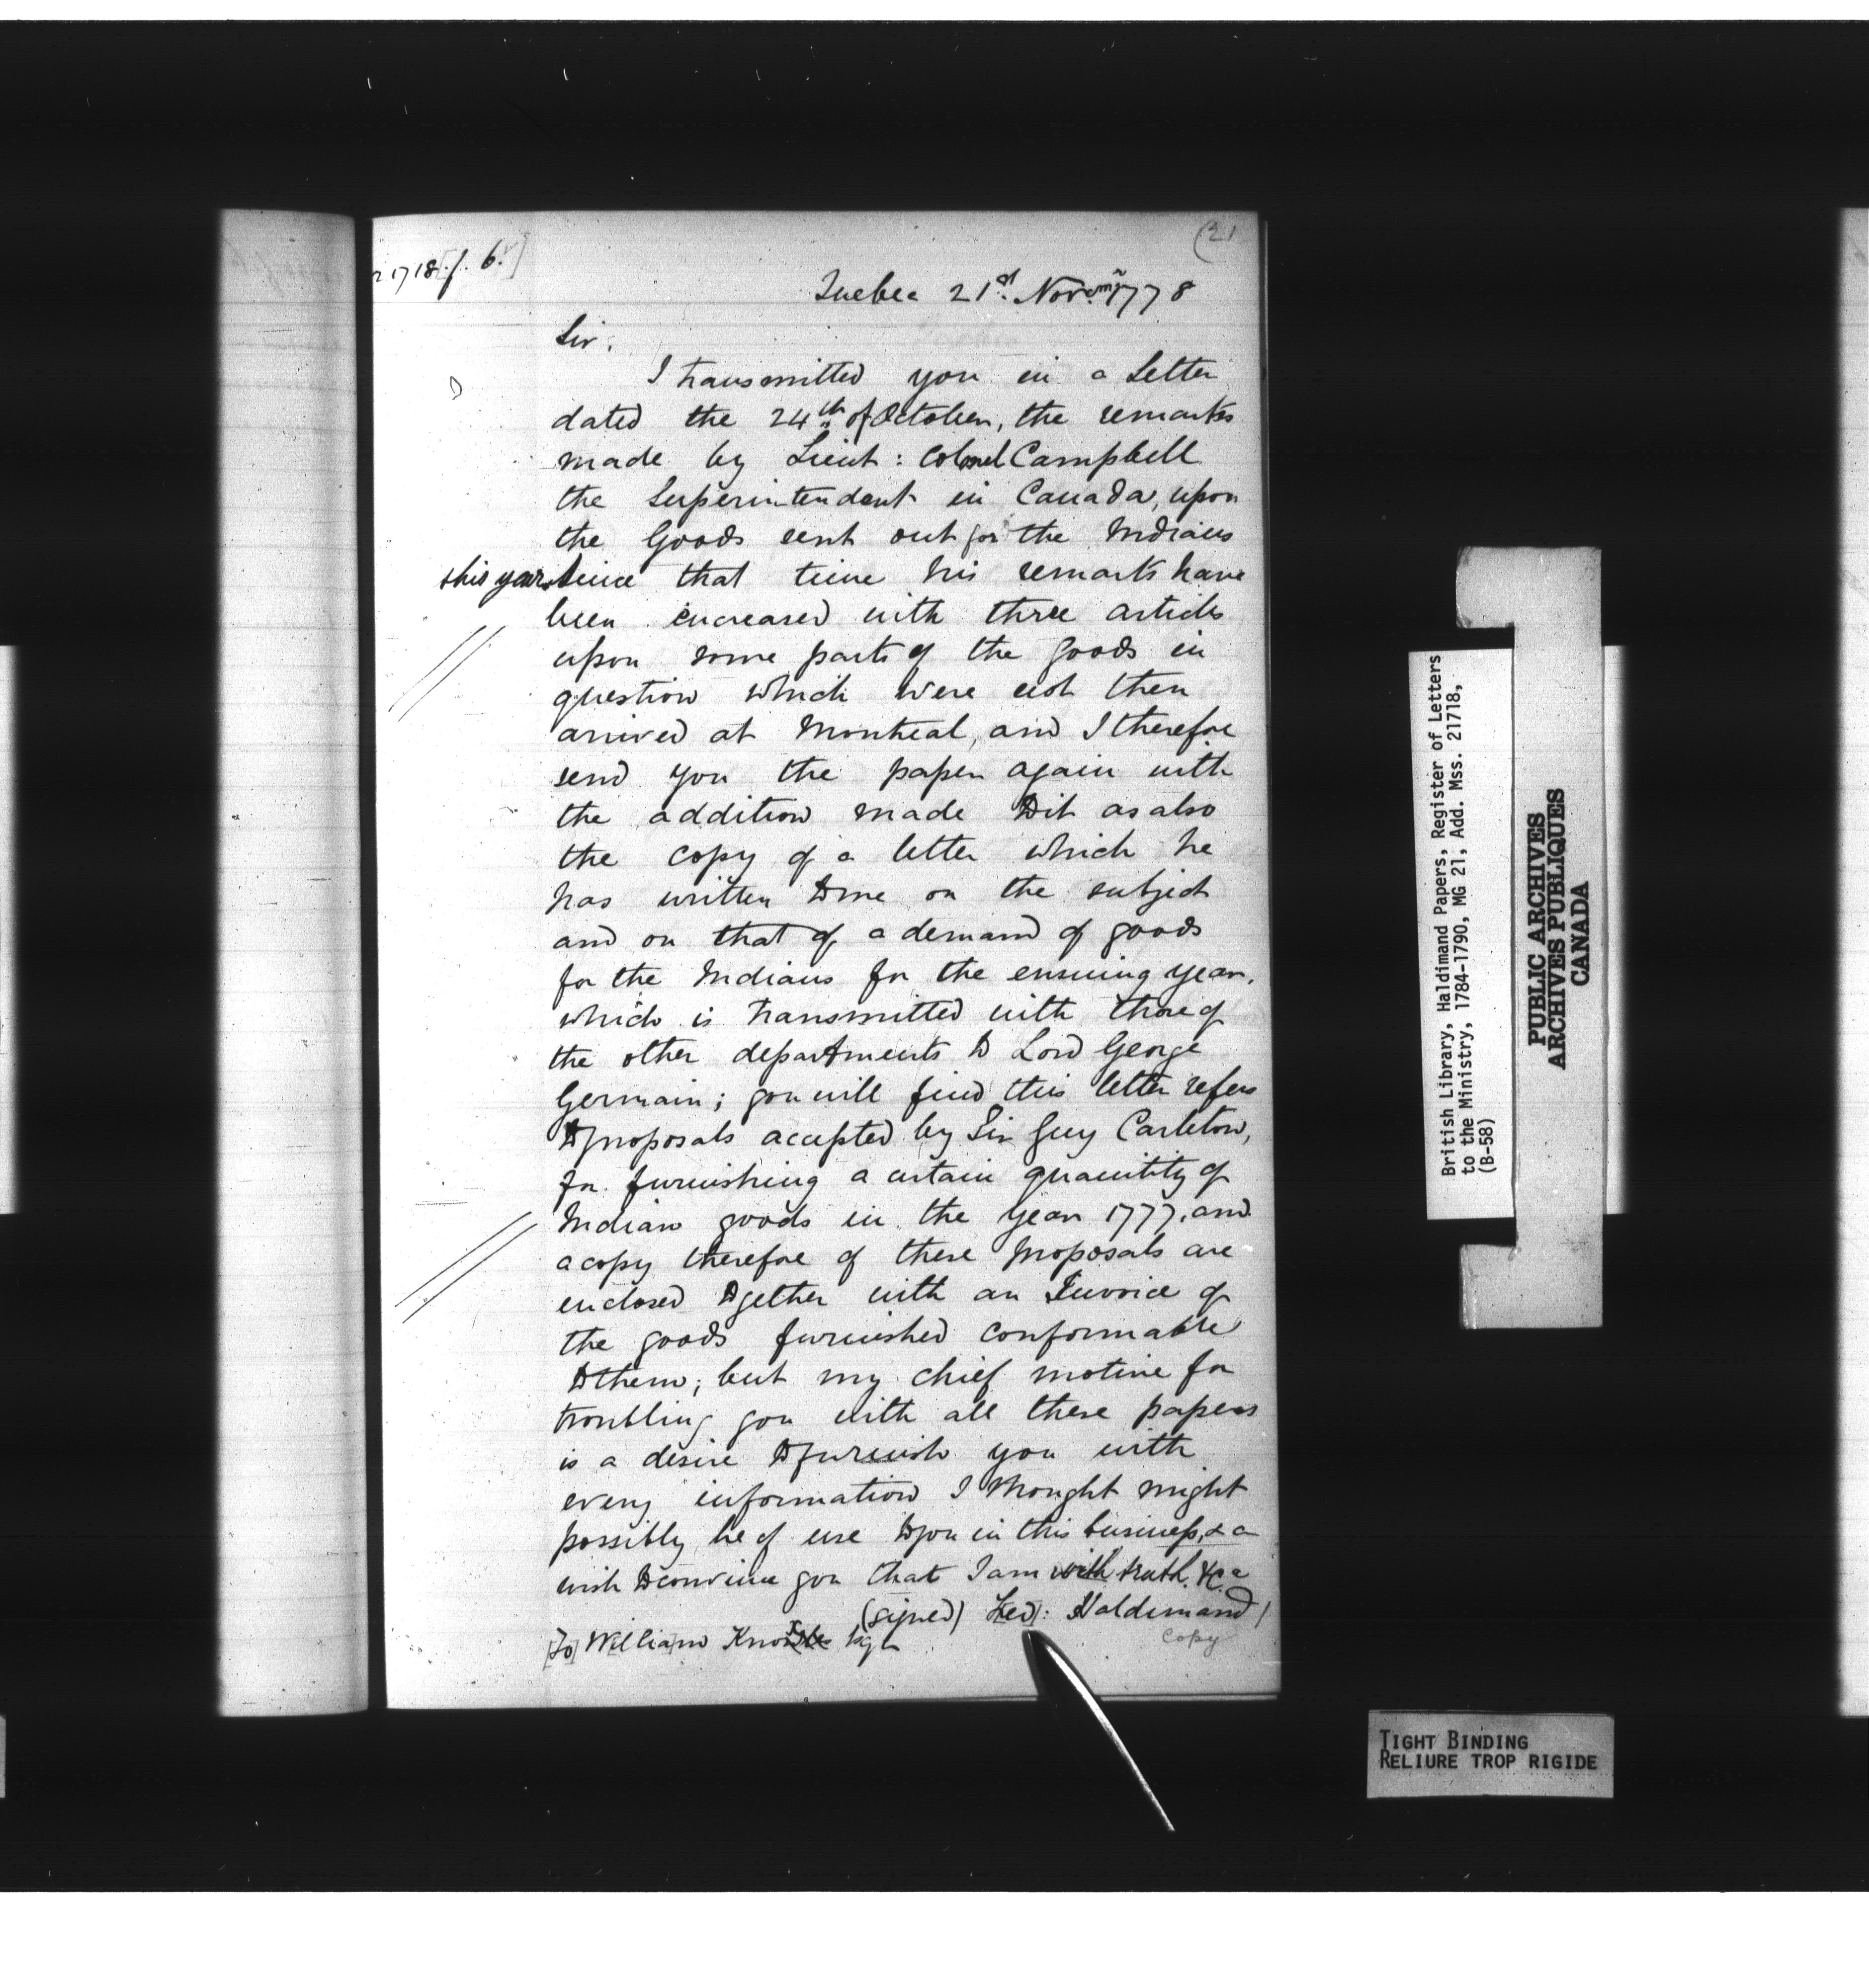 (21
21718. f. 6.]
Quebec 21st. Novemr 1778
Sir.
I transmitted you in a Letter
dated the 24th of October, the remarks
made by Lieut: Colonel Campbell
the Superintendent in Canada, upon
the Goods sent out for the Indians
this year. Since that time his remarks have
been increased with three articles
upon some parts of the goods in
question which were not then
arrived at Montreal, and I therefore
send you the paper again with
the addition made to it as also
the copy of a letter which he
has written to me on the subject
and on that of a demand of goods
for the Indians for the ensuing year,
which is transmitted with those of
the other departments to Lord George
Germain; you will find this letter refers
to proposals accepted by Sir Guy Carleton,
for furnishing a certain quantity of
Indian goods in the year 1777, and
a copy therefore of these proposals are
enclosed together with an Invoice of
the goods furnished conformable
to them; but my chief motive for
troubling you with all these papers
is a desire to furnish you with
every information I thought might
possibly be of use to you in this business, & a
wish to convince you that I am with truth. &ca
(signed) Fred: Haldimand
[To] William Knox Esqr
Copy
British Library, Haldimand Papers, Register of Letters
to the Ministry, 1784-1790, MG 21, Add. Mss. 21718,
(B-58)
PUBLIC ARCHIVES
ARCHIVES PUBLIQUES
CANADA
TIGHT BINDING
RELIURE TROP RIGIDE